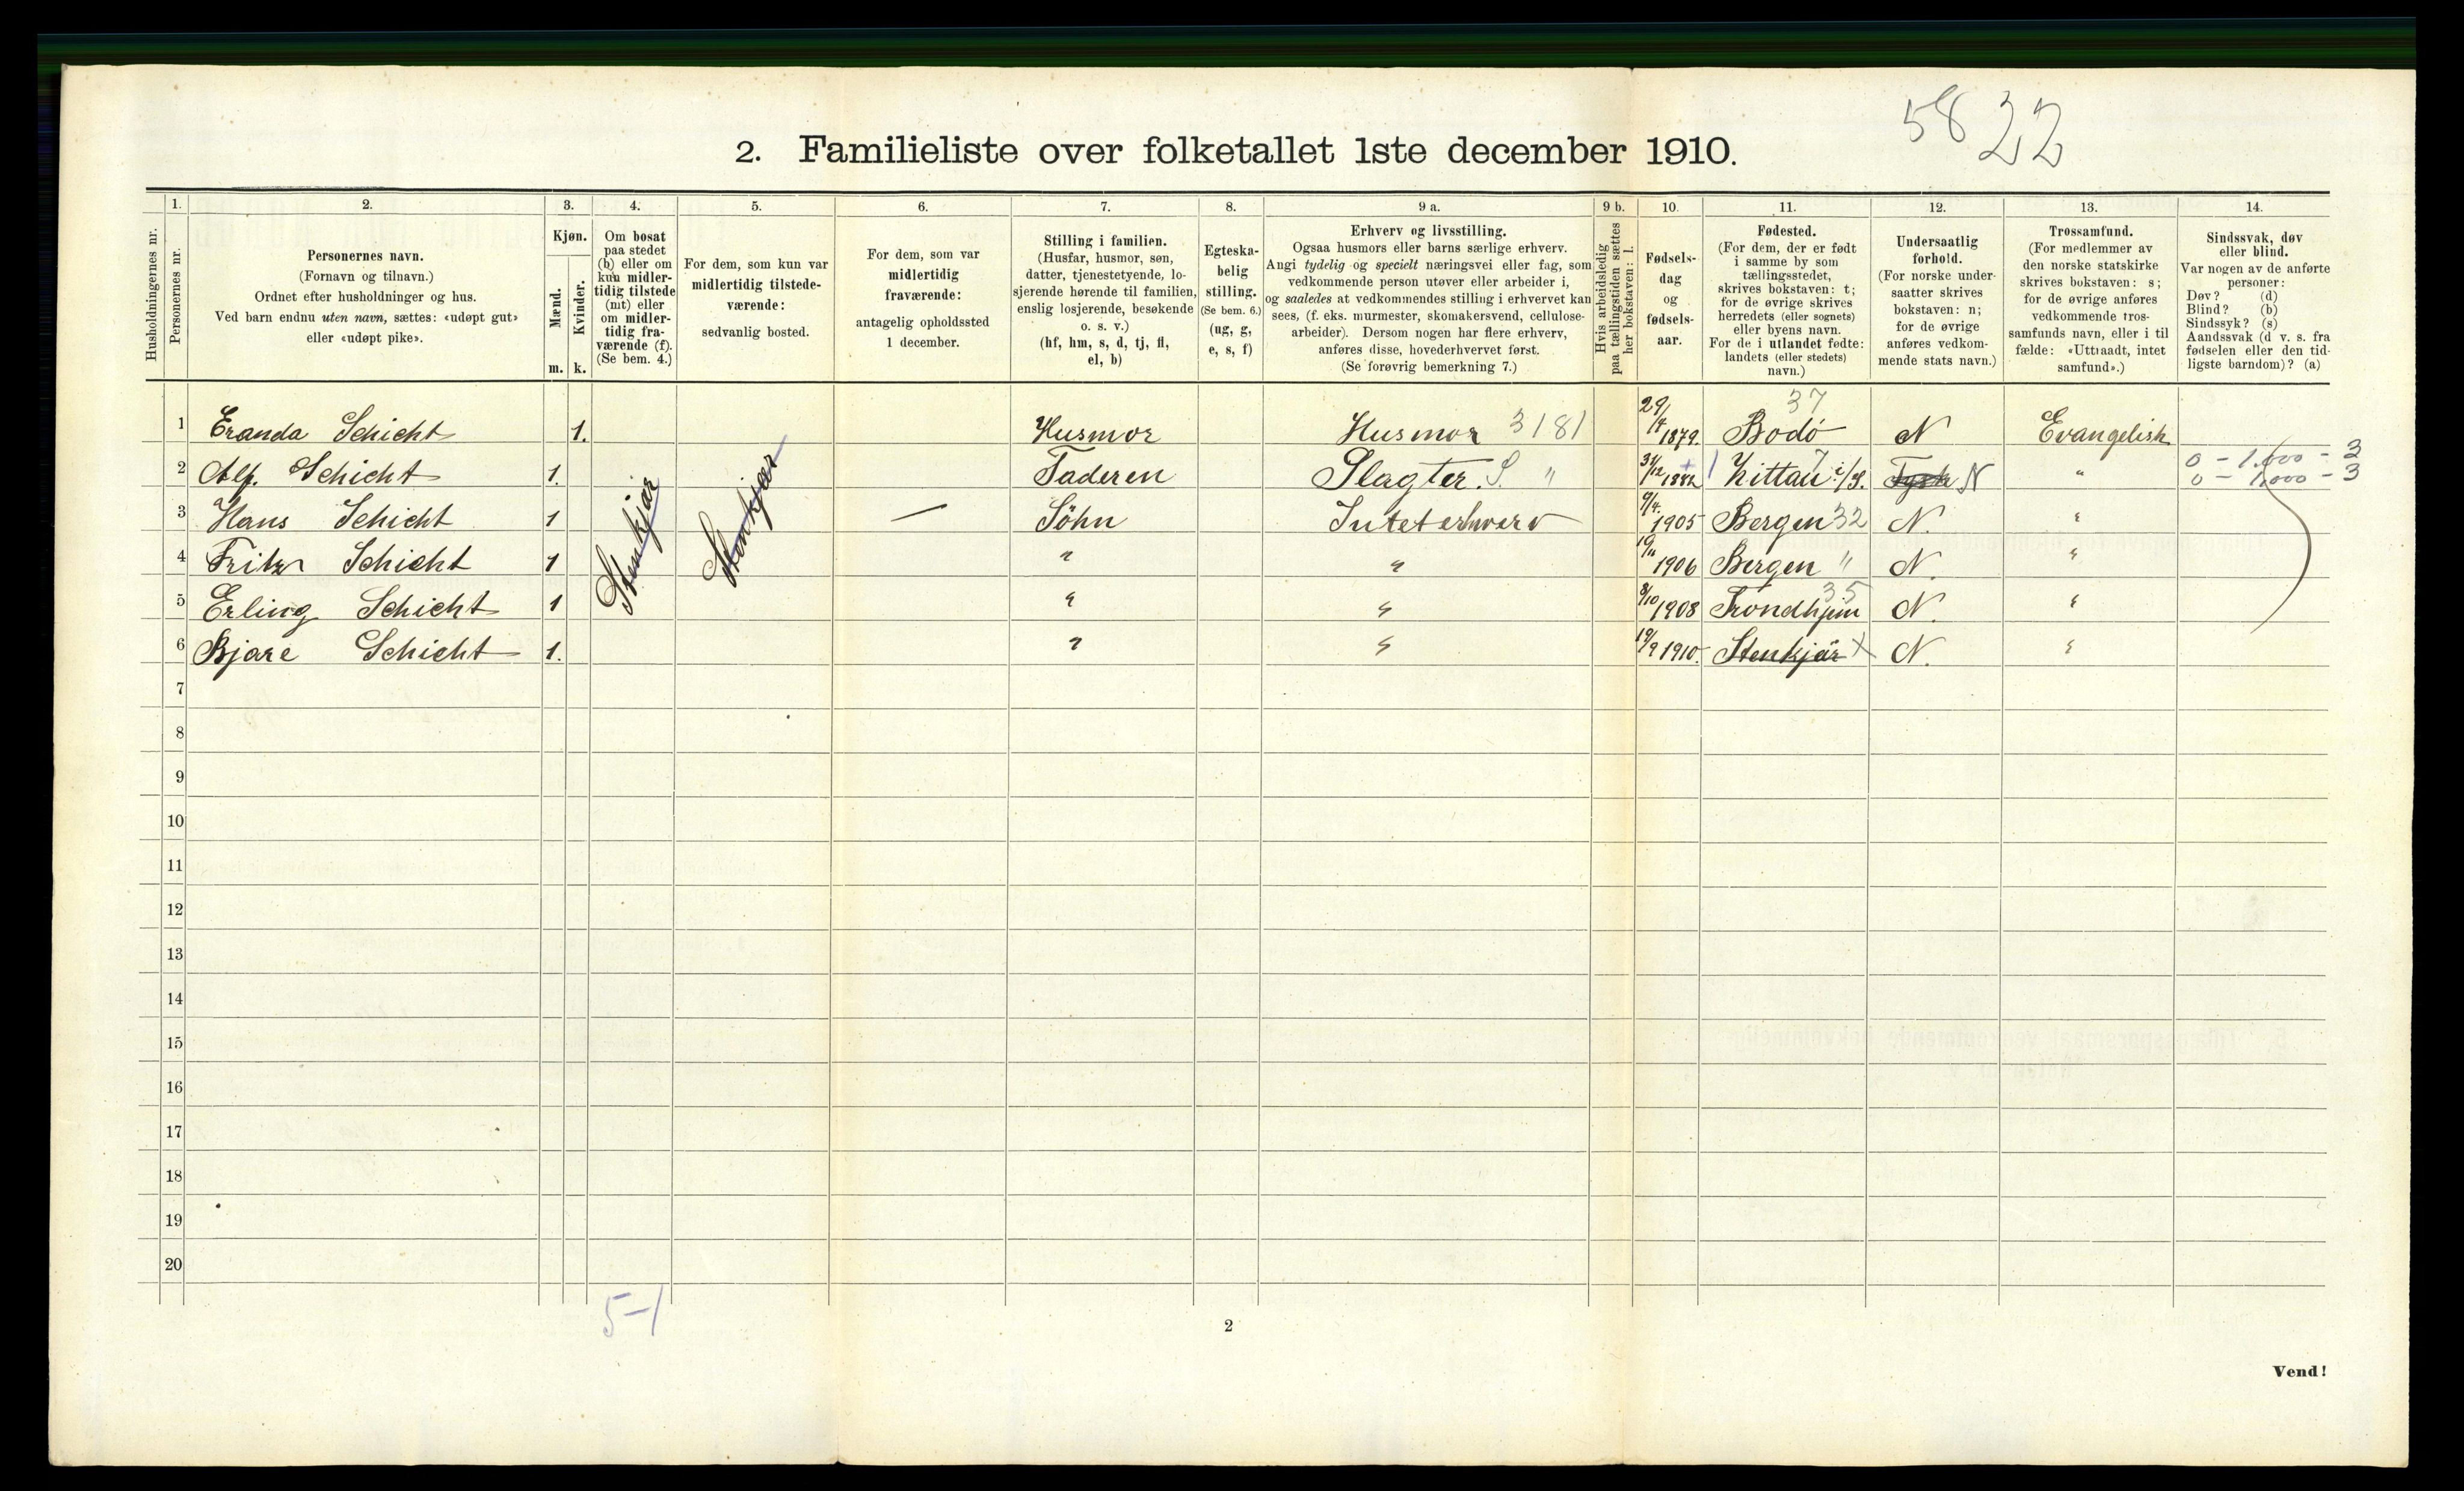 58 22
2. Familieliste over folketallet 1ste december 1910.
Husholdningernes nr.
1. Personernes nr.
2. Personernes navn.
(Fornavn og tilnavn.)
Ordnet efter husholdninger og hus.
Ved barn endnu uten navn, sættes: «udøpt gut»
eller «udøpt pike».
3. Kjøn.
Mænd. m.
Kvinder. k.
4. Om bosat
paa stedet
(b) eller om
kun midler-
tidig tilstede
(mt) eller
om midler-
tidig fra-
værende (f).
(Se bem. 4.)
5. For dem, som kun var
midlertidig tilstede-
værende:
sedvanlig bosted.
6. For dem, som var
midlertidig
fraværende:
antagelig opholdssted
1 december.
7. Stilling i familien.
(Husfar, husmor, søn,
datter, tjenestetyende, lo-
sjerende hørende til familien,
enslig losjerende, besøkende
o. s. v.)
(hf, hm, s, d, tj, fl,
el, b)
8. Egteska-
belig
stilling.
(Se bem. 6.)
(ug, g,
e, s, f)
9 a. Erhverv og livsstilling.
Ogsaa husmors eller barns særlige erhverv.
Angi tydelig og specielt næringsvei eller fag, som
vedkommende person utøver eller arbeider i,
og saaledes at vedkommendes stilling i erhvervet kan
sees, (f. eks. murmester, skomakersvend, cellulose-
arbeider). Dersom nogen har flere erhverv,
anføres disse, hovederhvervet først.
(Se forøvrig bemerkning 7.)
9 b. Hvis arbeidsledig
paa tællingstiden sættes
her bokstaven: l.
10. Fødsels-
dag
og
fødsels-
aar.
11. Fødested.
(For dem, der er født
i samme by som
tællingsstedet,
skrives bokstaven: t;
for de øvrige skrives
herredets (eller sognets)
eller byens navn.
For de i utlandet fødte:
landets (eller stedets)
navn.)
12. Undersaatlig
forhold.
(For norske under-
saatter skrives
bokstaven: n;
for de øvrige
anføres vedkom-
mende stats navn.)
13. Trossamfund.
(For medlemmer av
den norske statskirke
skrives bokstaven: s;
for de øvrige anføres
vedkommende tros-
samfunds navn, eller i til
fælde: «Uttraadt, intet
samfund».)
14. Sindssvak, døv
eller blind.
Var nogen av de anførte
personer:
Døv? (d)
Blind? (b)
Sindssyk? (s)
Aandssvak (d. v. s. fra
fødselen eller den tid-
ligste barndom)? (a)
1 Eranda Schicht 1. Husmor Husmor 3181 29/7 1879. Bodö 37 N Evangelisk
2 Alf. Schicht 1. Faderen Slagter. S. " 31/12 1882 Zittau i/S. 7 Tysk N " 0 - 1.600 - 3
0 - 1.000 - 3
3 Hans Schicht 1 Stenkjær Stenkjær — Söhn Intet erhverv 9/4. 1905 Bergen 32 N. "
4 Fritz Schicht 1 " " 19/11 1906 Bergen " N. "
5 Erling Schicht 1 " " 8/10 1908 Trondhjem 35 N. "
6 Bjare Schicht 1. " " 19/9 1910. Stenkjär X N. "
7
8
9
10
11
12
13
14
15
16
17
18
19
20
5-1
2
Vend!